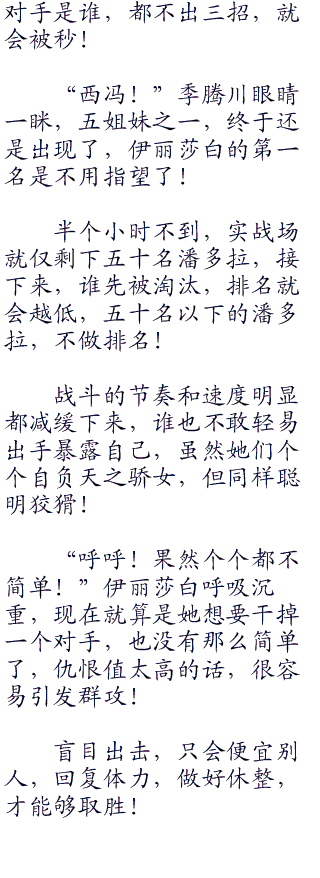 对手是谁，都不出三招，就
会被秒！
“西冯！”季腾川眼睛
一眯，五姐妹之一，终于还
是出现了，伊丽莎白的第一
名是不用指望了！
半个小时不到，实战场
就仅剩下五十名潘多拉，接
下来，谁先被淘汰，排名就
会越低，五十名以下的潘多
拉，不做排名！
战斗的节奏和速度明显
都减缓下来，谁也不敢轻易
出手暴露自己，虽然她们个
个自负天之骄女，但同样聪
明狡猾！
“呼呼！果然个个都不
简单！”伊丽莎白呼吸沉
重，现在就算是她想要干掉
一个对手，也没有那么简单
了，仇恨值太高的话，很容
易引发群攻！
盲目出击，只会便宜别
人，回复体力，做好休整，
才能够取胜！